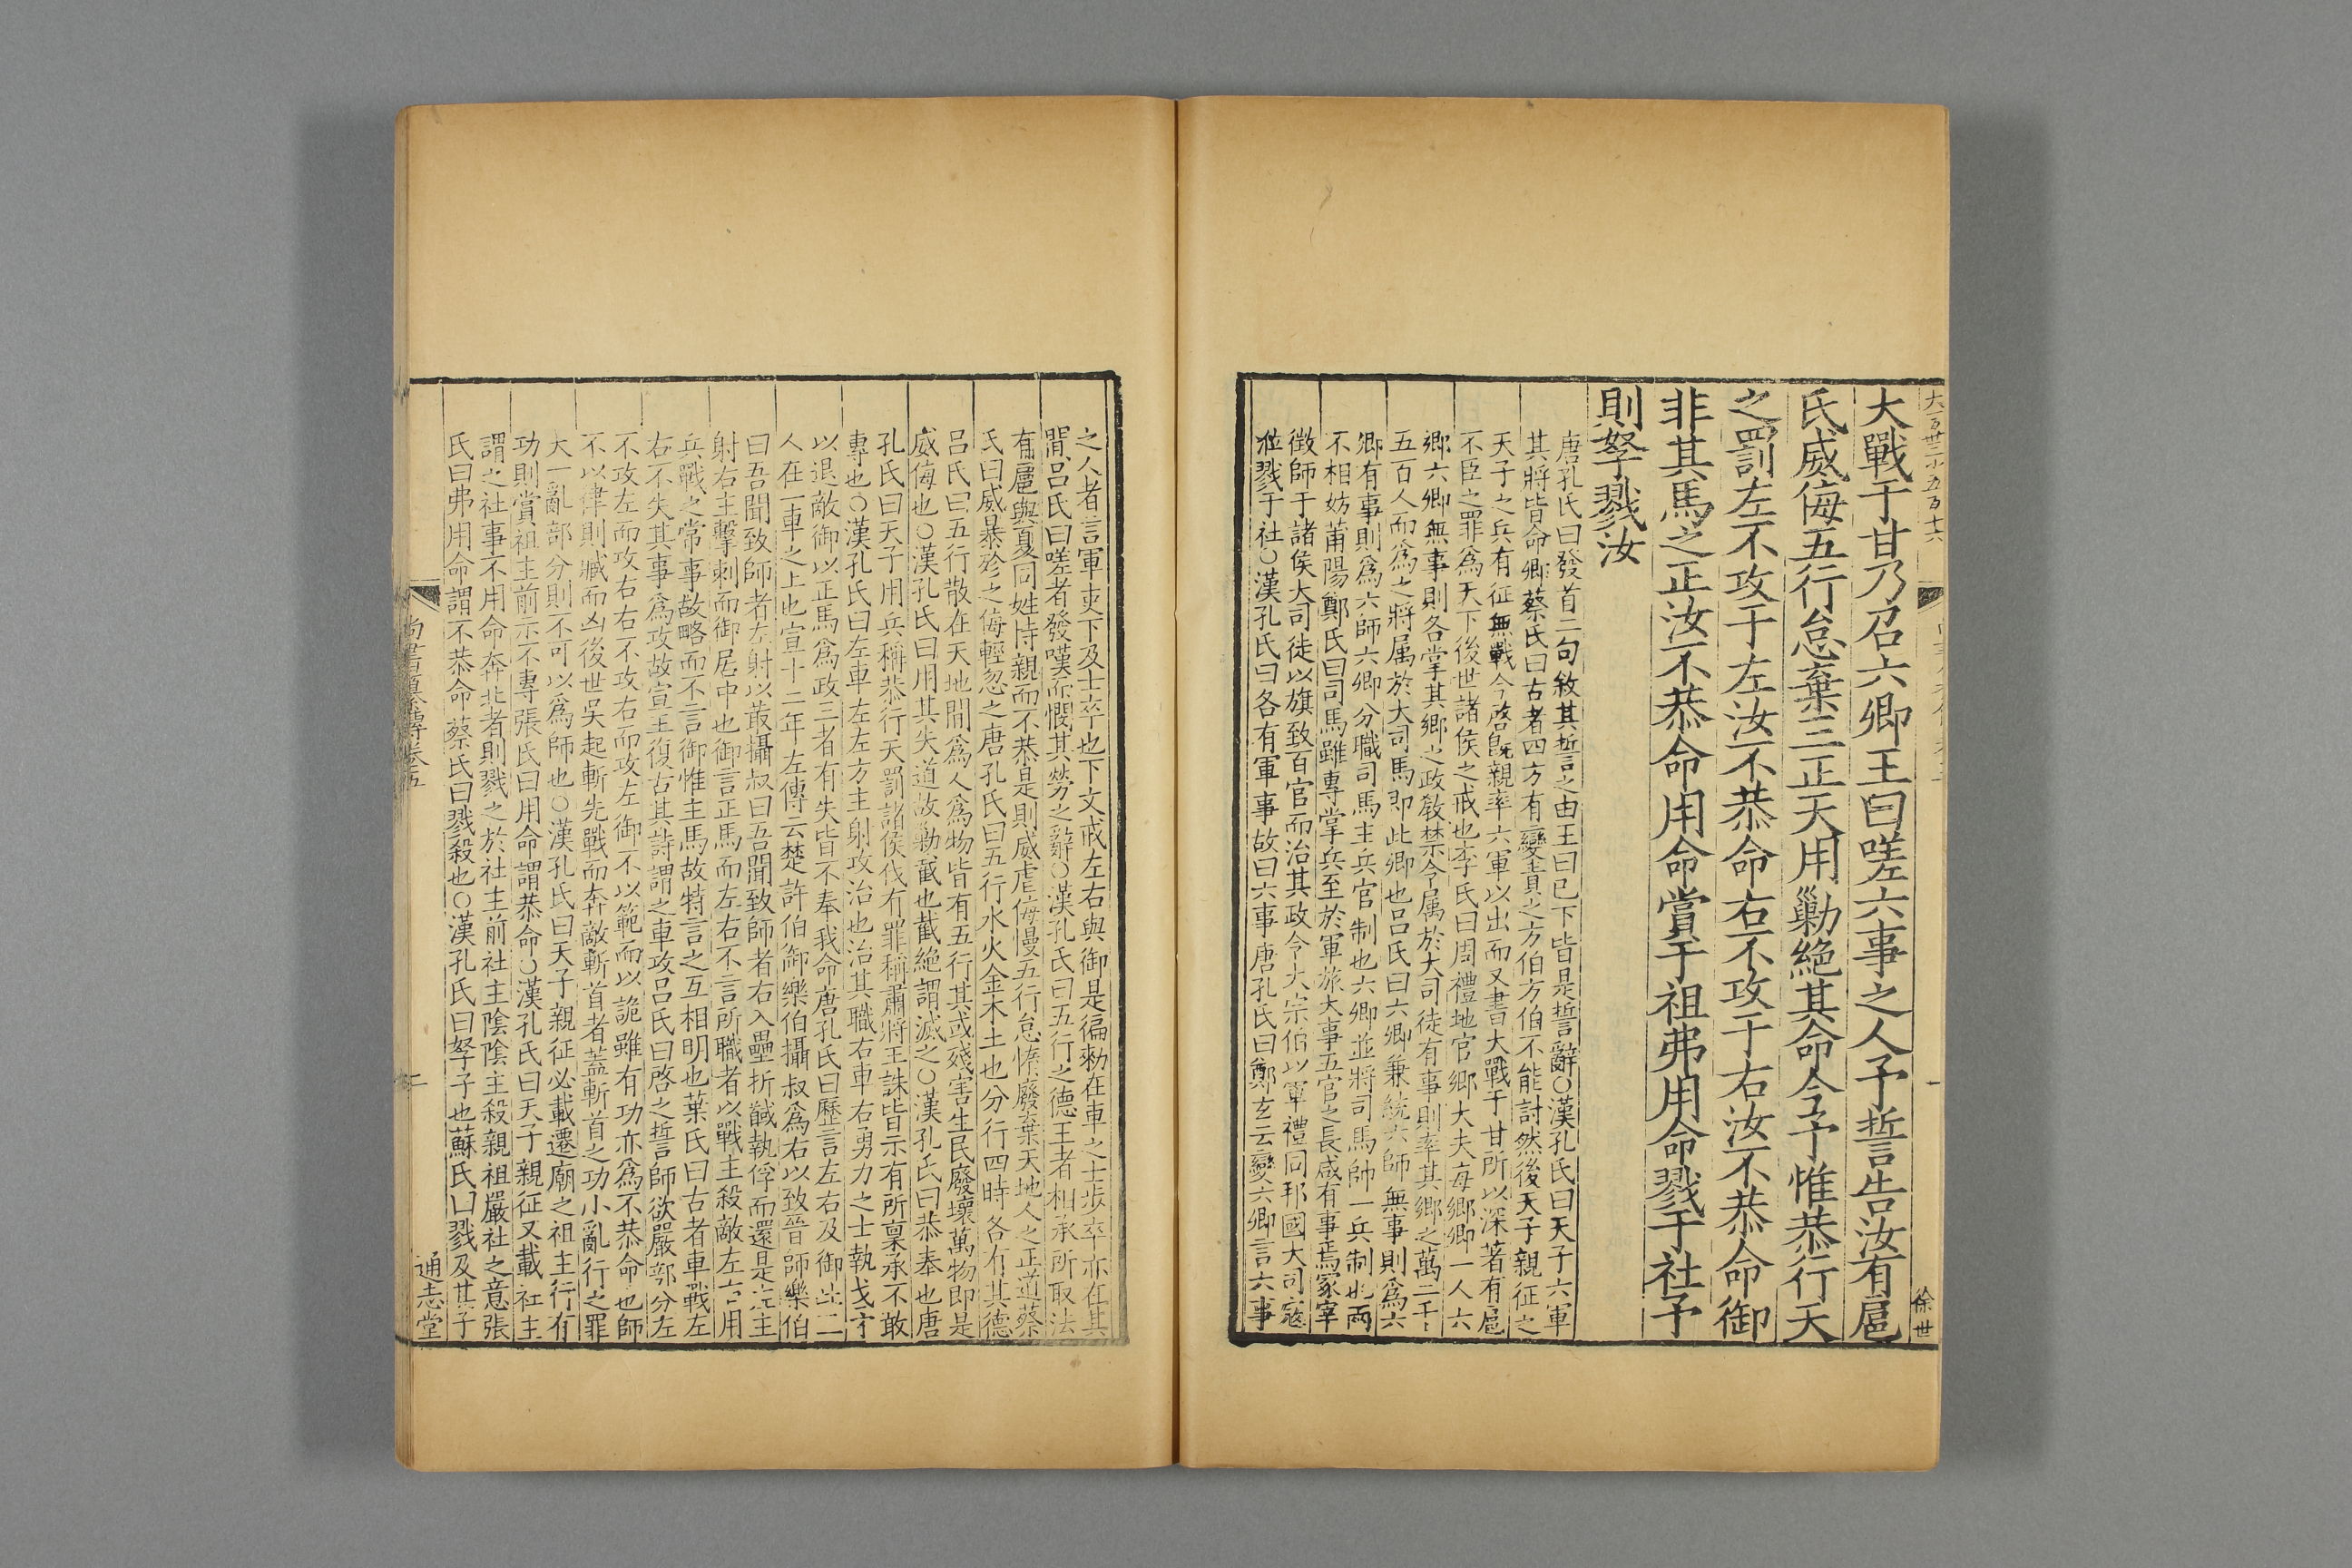 大戰于甘乃召六卿王曰嗟六事之人予誓告汝有扈
氏威侮五行怠棄三正天用勦絶其命今予惟恭行天
之罰左不攻于左汝不恭命右不攻于右汝不恭命御
非其馬之正汝不恭命用命賞于祖弗用命戮于社予
則孥戮汝
唐孔氏曰發首二句敘其誓之由王曰已下皆是誓辭○漢孔氏曰天子六軍
其將皆命卿蔡氏曰古者四方有變責之方伯方伯不能討然後天子親征之
天子之兵有征無戰今啓旣親率六軍以出而又書大戰于甘所以深著有扈
不臣之罪爲天下後世諸侯之戒也李氏曰周禮地官鄉大夫每鄉卿一人六
鄉六卿無事則各掌其鄉之政敎禁令屬於大司徒有事則率其鄉之萬二千
五百人而爲之將属於大司馬即此卿也吕氏曰六卿兼統六師無事則爲六
卿有事則爲六師六卿分職司馬主兵官制也六卿並將司馬帥一兵制也兩
不相妨莆陽鄭氏曰司馬雖專掌兵至於軍旅大事五官之長咸有事焉冢宰
徵師于諸侯大司徒以旗致百官而治其政令大宗伯以軍禮同邦國大司寇
涖戮于社○漢孔氏曰各有軍事故曰六事唐孔氏曰鄭玄云變六卿言六事
之人者言軍吏下及士卒也下文戒左右與御是徧勑在車之士步卒亦在其
閒吕氏曰嗟者發嘆而憫其勞之辭○漢孔氏曰五行之德王者相承所取法
有扈與夏同姓恃親而不恭是則威虐侮慢五行怠惰廢棄天地人之正道蔡
氏曰威暴殄之侮輕忽之唐孔氏曰五行水火金木土也分行四時各有其德
吕氏曰五行散在天地間爲人爲物皆有五行其或殘害生民廢壞萬物即是
威侮也○漢孔氏曰用其失道故勦截也截絶謂滅之○漢孔氏曰恭奉也唐
孔氏曰天子用兵稱恭行天罰諸侯伐有罪稱肅將王誅皆示有所稟承不敢
專也○漢孔氏曰左車左左方主射攻治也治其職右車右勇力之士執戈矛
以退敵御以正馬爲政三者有失皆不奉我命唐孔氏曰歷言左右及御此三
人在一車之上也宣十二年左傳云楚許伯御樂伯攝叔爲右以致晉師樂伯
曰吾聞致師者左射以菆攝叔曰吾聞致師者右入壘折馘執俘而還是左主
射右主擊刺而御居中也御言正馬而左右不言所職者以戰主殺敵左右用
兵戰之常事故略而不言御惟主馬故特言之互相明也葉氏曰古者車戰左
右不失其事爲攻故宣王復古其詩謂之車攻吕氏曰啓之誓師欲嚴部分左
不攻左而攻右右不攻右而攻左御不以範而以詭雖有功亦爲不恭命也師
不以律則臧而凶後世吳起斬先戰而奔敵斬首者蓋斬首之功小亂行之罪
大一亂部分則不可以爲師也○漢孔氏曰天子親征必載遷廟之祖主行有
功則賞祖主前示不專張氏曰用命謂恭命○漢孔氏曰天子親征又載社主
謂之社事不用命奔北者則戮之於社主前社主陰陰主殺親祖嚴社之意張
氏曰弗用命謂不恭命蔡氏曰戮殺也○漢孔氏曰孥子也蘇氏曰戮及其子
尚書纂傳卷五
二
通志堂